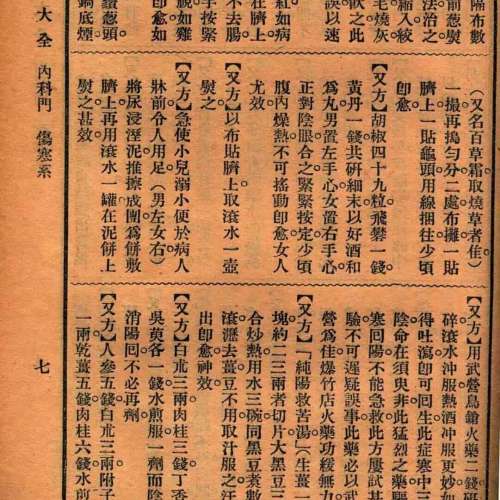 隔布數
前葱熨
法治之
縮入絞
毛燒灰
飲之此
誤以速
紅如病
在臍上
不去腸
手按緊
脫如雞
卽愈如
葱頭
鍋底煙
(又名百草霜取燒草者佳)
一撮再搗勻分二處布攤一貼
臍上一貼龜頭用線捆往少頃
卽愈
【又方】胡椒四十九粒飛礬一錢
黃丹一錢共硏細末以好酒和
爲丸男置左手心女置右手心
正對陰眼合之緊緊按定少頃
腹內燥熱不可搖動卽愈女人
尤效
【又方】以布貼臍上取滾水一壺
熨之
【又方】急使小兒溺小便於病人
牀前令人用足(男左女右)
將尿浸溼泥推擦成團爲餅敷
臍上再用滾水一罐在泥餅上
熨之甚效
【又方】用武營鳥鎗火藥二錢硏
碎滾水沖服熱酒沖服更妙如
得吐瀉卽可回生此症寒中
陰命在須臾非此猛烈之藥驅
寒回陽不能急救此方屢試
驗不可遲疑誤事此藥必以武
營爲佳爆竹店火藥功緩無力
【純陽救苦湯】(生薑一
塊約二三兩者切片大黑豆三
合炒熱用水三碗同黑豆煮數
滾瀝去薑豆不用取汁服之汗
出卽愈神效
【又方】白朮三兩肉桂三錢丁香
吳萸各一錢水煎服一劑而陰
消陽回不必再劑
【又方】人參五錢白朮三兩附子
一兩乾薑五錢肉桂六錢水煎
大全 內科門 傷寒系 七